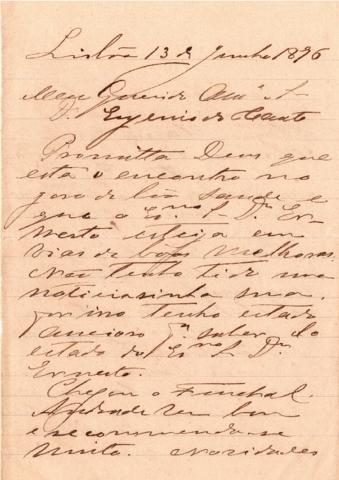 Lisbôa 13 de Junho 1896
Meu Querido Am.º S.
D. Eugenio do Canto
Promitta Deus que
esta o encontre no
goso de bôa saude e
que o Ex.mo S. Dr. Er-
nesto esteja em
vias de bôas melhoras.
Não tenho tido uma
noticiasinha sua,
por isso tenho estado
ancioso p.a saber do
estado do Ex.mo S. Dr.
Ernesto.
Chegou o Funchal.
Andrade vem bom
e recommenda-se
muito. Novidades